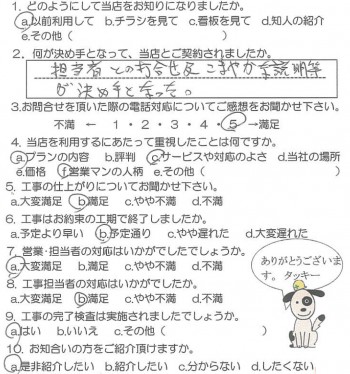 1. どのようにして当店をお知りになりましたか。
a.以前利用して b.チラシを見て c.看板を見て d.知人の紹介
e.その他( )
2. 何が決め手となって、当店とご契約されましたか。
担当者との打合せ及こまやかな説明等
が決め手となった。
3.お問合せを頂いた際の電話対応についてご感想をお聞かせ下さい。
不満 ← 1・2・3・4・5 →満足
4. 当店を利用するにあたって重視したことは何ですか。
a.プランの内容 b.評判 c.サービスや対応のよさ d.当社の場所
e.価格 f.営業マンの人柄 e.その他( )
5. 工事の仕上がりについてお聞かせ下さい。
a.大変満足 b.満足 c.やや不満 d.不満
6. 工事はお約束の工期で終了しましたか。
a.予定より早い b.予定通り c.やや遅れた d.大変遅れた
7. 営業・担当者の対応はいかがでしたでしょうか。
a.大変満足 b.満足 c.やや不満 d.不満
8. 工事担当者の対応はいかがでしたか。
a.大変満足 b.満足 c.やや不満 d.不満
9. 工事の完了検査は実施されましたでしょうか。
a.はい b.いいえ c.その他( )
10. お知合いの方をご紹介頂けますか。
a.是非紹介したい b.紹介したい c.分からない d.したくない
ありがとうございま
す。タッキー